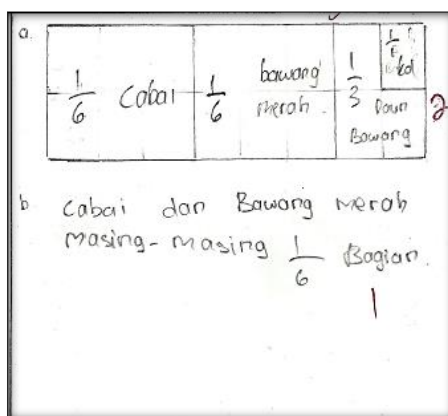 a.
1/6 Cabai 1/6 bawang merah. 1/3 Daun Bawang
2
b Cabai dan Bawang merah
masing-masing 1/6 Bagian.
1